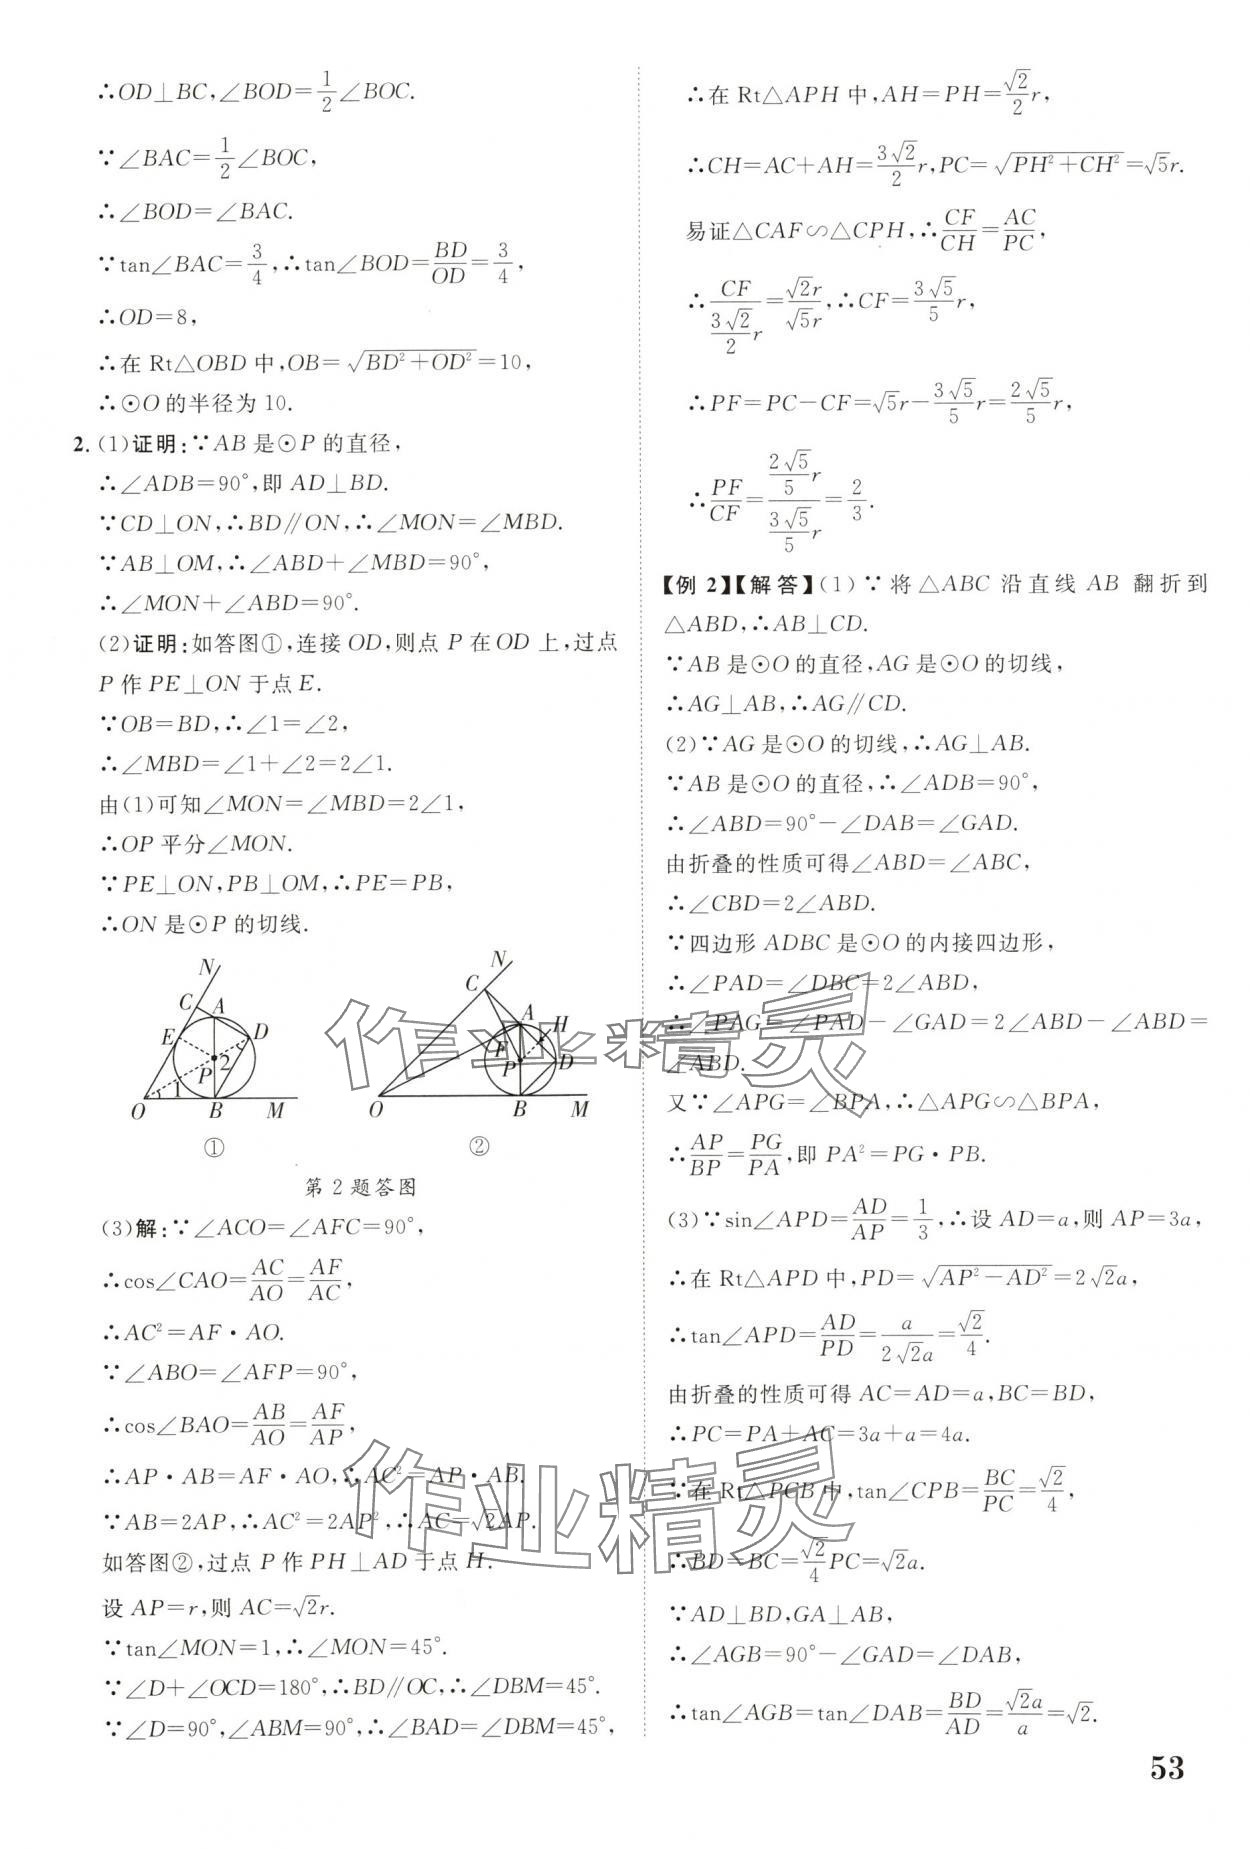 ∴OD⊥BC,∠BOD=1/2∠BOC.
∵∠BAC=1/2∠BOC,
∴∠BOD=∠BAC.
∵tan∠BAC=3/4,∴tan∠BOD=BD/OD=3/4,
∴OD=8,
∴在 Rt△OBD 中,OB=√(BD²+OD²)=10,
∴⊙O 的半径为 10.
2. (1)证明:∵AB 是⊙P 的直径,
∴∠ADB=90°,即 AD⊥BD.
∵CD⊥ON,∴BD∥ON,∴∠MON=∠MBD.
∵AB⊥OM,∴∠ABD+∠MBD=90°,
∴∠MON+∠ABD=90°.
(2)证明:如答图①,连接 OD,则点 P 在 OD 上,过点
P 作 PE⊥ON 于点 E.
∵OB=BD,∴∠1=∠2,
∴∠MBD=∠1+∠2=2∠1.
由(1)可知∠MON=∠MBD=2∠1,
∴OP 平分∠MON.
∵PE⊥ON,PB⊥OM,∴PE=PB,
∴ON 是⊙P 的切线.
N
C A
E D
P 2
1
O B M
①
N
C
A H
F
P D
O B M
②
第 2 题答图
(3)解:∵∠ACO=∠AFC=90°,
∴cos∠CAO=AC/AO=AF/AC,
∴AC²=AF·AO.
∵∠ABO=∠AFP=90°,
∴cos∠BAO=AB/AO=AF/AP,
∴AP·AB=AF·AO,∴AC²=AP·AB.
∵AB=2AP,∴AC²=2AP²,∴AC=√2AP.
如答图②,过点 P 作 PH⊥AD 于点 H.
设 AP=r,则 AC=√2r.
∵tan∠MON=1,∴∠MON=45°.
∵∠D+∠OCD=180°,∴BD∥OC,∴∠DBM=45°.
∵∠D=90°,∠ABM=90°,∴∠BAD=∠DBM=45°,
∴在 Rt△APH 中,AH=PH=√2/2r,
∴CH=AC+AH=3√2/2r,PC=√(PH²+CH²)=√5r.
易证△CAF∽△CPH,∴CF/CH=AC/PC,
∴CF/(3√2/2r)=√2r/√5r,∴CF=3√5/5r,
∴PF=PC−CF=√5r−3√5/5r=2√5/5r,
∴PF/CF=(2√5/5r)/(3√5/5r)=2/3.
【例 2】【解答】(1)∵将△ABC 沿直线 AB 翻折到
△ABD,∴AB⊥CD.
∵AB 是⊙O 的直径,AG 是⊙O 的切线,
∴AG⊥AB,∴AG∥CD.
(2)∵AG 是⊙O 的切线,∴AG⊥AB.
∵AB 是⊙O 的直径,∴∠ADB=90°,
∴∠ABD=90°−∠DAB=∠GAD.
由折叠的性质可得∠ABD=∠ABC,
∴∠CBD=2∠ABD.
∵四边形 ADBC 是⊙O 的内接四边形,
∴∠PAD=∠DBC=2∠ABD,
∴∠PAG=∠PAD−∠GAD=2∠ABD−∠ABD=
∠ABD.
又∵∠APG=∠BPA,∴△APG∽△BPA,
∴AP/BP=PG/PA,即 PA²=PG·PB.
(3)∵sin∠APD=AD/AP=1/3,∴设 AD=a,则 AP=3a,
∴在 Rt△APD 中,PD=√(AP²−AD²)=2√2a,
∴tan∠APD=AD/PD=a/2√2a=√2/4.
由折叠的性质可得 AC=AD=a,BC=BD,
∴PC=PA+AC=3a+a=4a.
∵在 Rt△PCB 中,tan∠CPB=BC/PC=√2/4,
∴BD=BC=√2/4PC=√2a.
∵AD⊥BD,GA⊥AB,
∴∠AGB=90°−∠GAD=∠DAB,
∴tan∠AGB=tan∠DAB=BD/AD=√2a/a=√2.
作业精灵
作业精灵
53